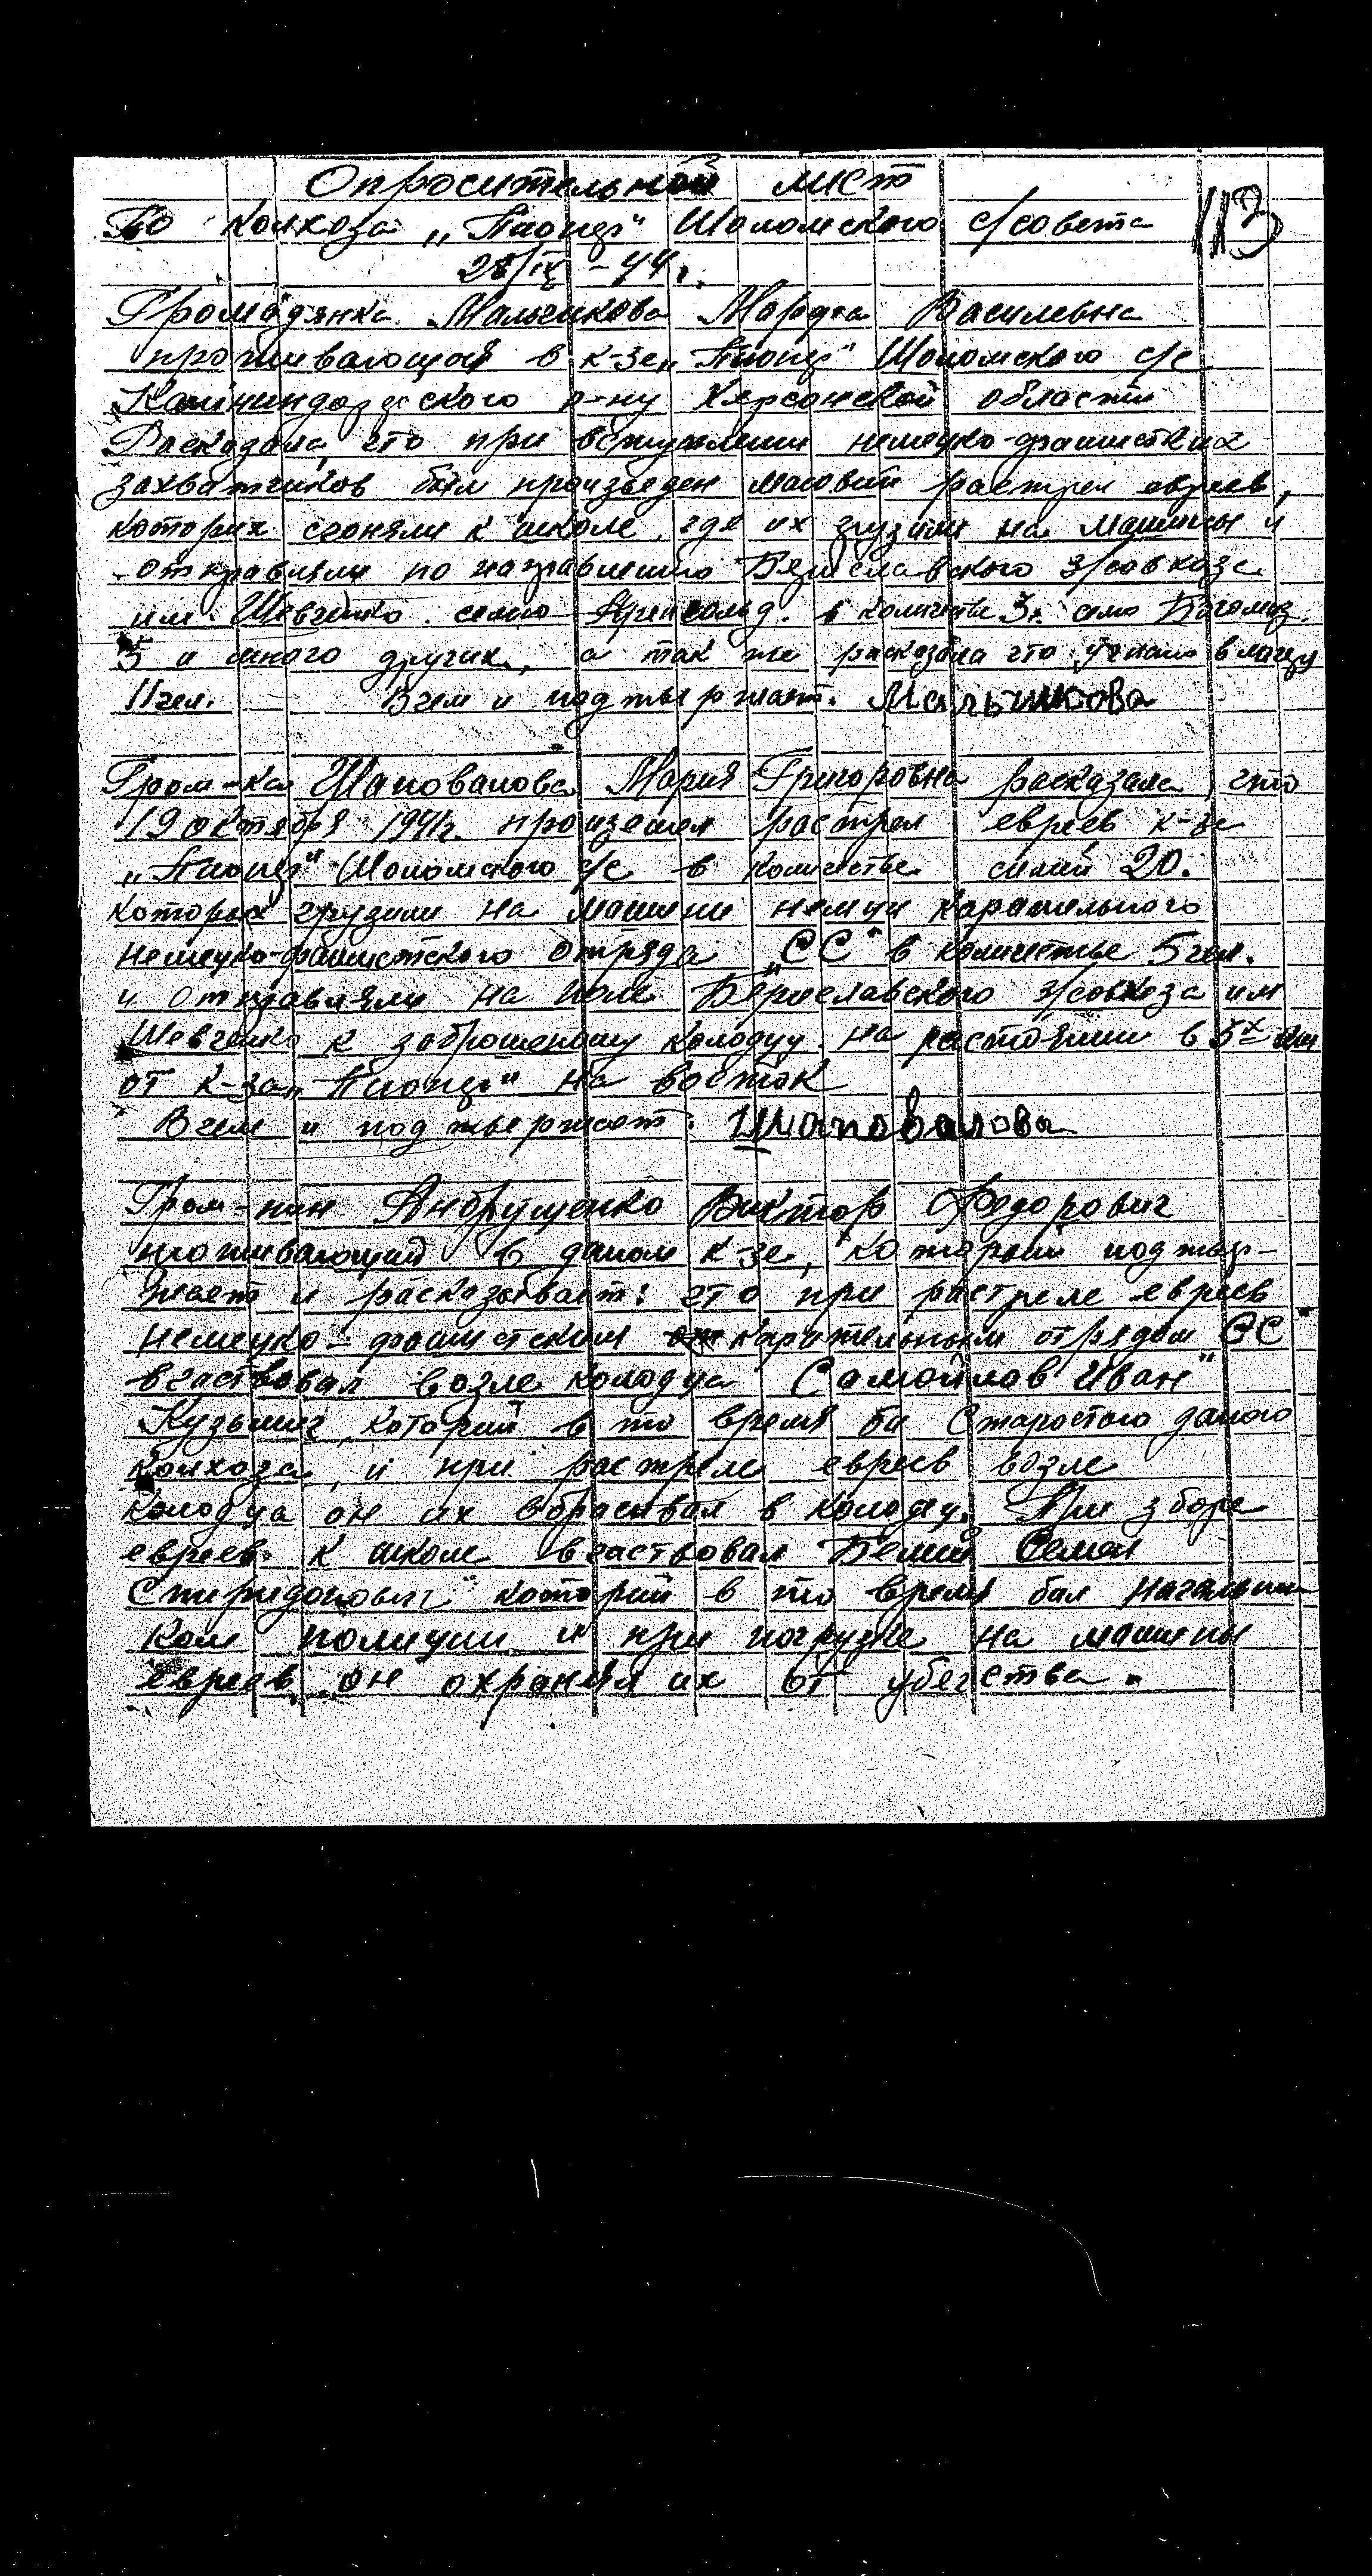 Опросительной лист
113
По колхоза „Пионер" Шоломского с/совета
28/IX – 44 г.
Громодянка Мальчикова Марфа Василевна
проживающая в к-зе „Пионер" Шоломского с/с
Калининдорфского р-ну Херсонской области
Расказала, что при вступлении немецко-фашистких
захватчиков был произведен массовий растрел евреев,
которих сгоняли к школе, где их грузили на машины и
отправляли по направлению Бериславского з/совхоза
им. Шевченко. семю в количестве 3. семю
5 и много других, а так же расказала что угнали в
11 чел. В чем и подтвержает. Мальчикова
Гром-ка Шаповалова Мария Григоровна расказала, что
19 октября 1941 г. произешел растрел евреев к-за
„Пионер" Шоломского с/с в количестве симей 20.
которых грузили на машини немци карательного
немецко-фашистского отряда „СС" в количестве 5 чел.
и отправляли на поле Бериславского з/совхоза им
Шевченко к заброшеному колодцу. на растоянии в 5х км
от к-за „Пионер" на восток
В чем и подтвержает: Шаповалова
Гром-нин Андрущенко Виктор Федорович
проживающий в даном к-зе, которий подтвер-
жает и расказывает: что при растреле евреев
немецко-фашистским карательным отрядом СС
вчаствовал возле колодца „Самойлов Иван"
Кузьмич, который в то время би Старостою даного
колхоза, и при растреле евреев возле
колодца он их сбрасывал в колодец. При зборе
евреев к школе вчаствовал Белий Семен
Спиридонович" которий в то время бал начальни
ком полиции и при погрузке на машины
евреев он охранял их от убегства.